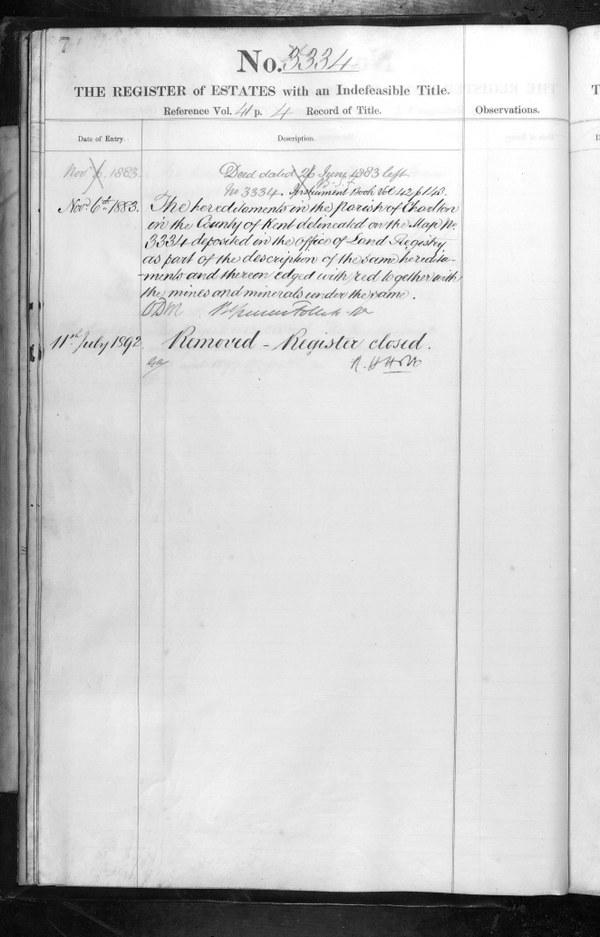 7
No. 3334
THE REGISTER of ESTATES with an Indefeasible Title.
Reference Vol. 41 p. 4 Record of Title.
Observations.
Date of Entry.
Description.
Novr 6, 1883.
Deed dated 26 June 1883 left.
No 3334. Instrument Book Vol 42 p 148.
Novr 6th 1883.
The hereditaments in the Parish of Charlton
in the County of Kent delineated on the Map No
3334 deposited in the office of Land Registry
as part of the description of the same heredita-
-ments and thereon edged with red together with
the mines and minerals under the same.
11th July 1892
Removed - Register closed.